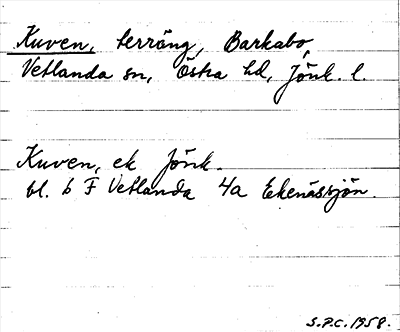 Kuven, terräng, Barkabo,
Vetlanda sn, Östra hd, Jönk. l.
Kuven, ek Jönk.
bl. 6 F Vetlanda 4a Ekenässjön.
S.P.C. 1958.